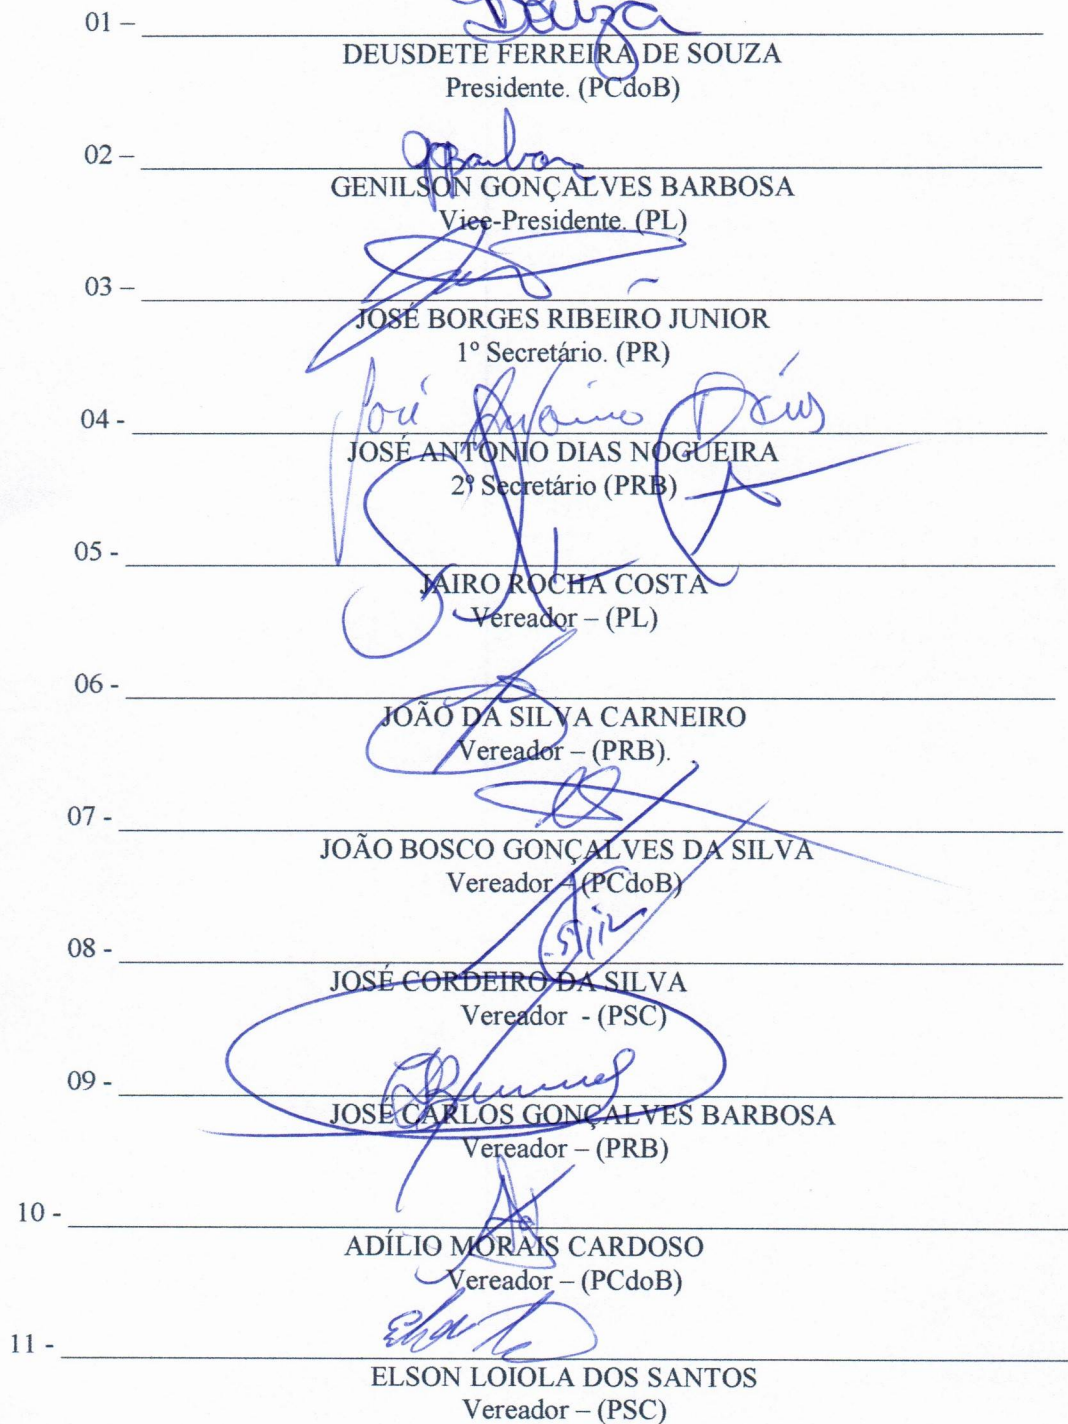 01 –
DEUSDETE FERREIRA DE SOUZA
Presidente. (PCdoB)
02 –
GENILSON GONÇALVES BARBOSA
Vice-Presidente. (PL)
03 –
JOSÉ BORGES RIBEIRO JUNIOR
1º Secretário. (PR)
José Antônio Dias
04 -
JOSÉ ANTONIO DIAS NOGUEIRA
2º Secretário (PRB)
05 -
JAIRO ROCHA COSTA
Vereador – (PL)
06 -
JOÃO DA SILVA CARNEIRO
Vereador – (PRB).
07 -
JOÃO BOSCO GONÇALVES DA SILVA
Vereador - (PCdoB)
08 -
JOSÉ CORDEIRO DA SILVA
Vereador - (PSC)
09 -
JOSÉ CARLOS GONÇALVES BARBOSA
Vereador – (PRB)
10 -
ADÍLIO MORAIS CARDOSO
Vereador – (PCdoB)
11 -
ELSON LOIOLA DOS SANTOS
Vereador – (PSC)